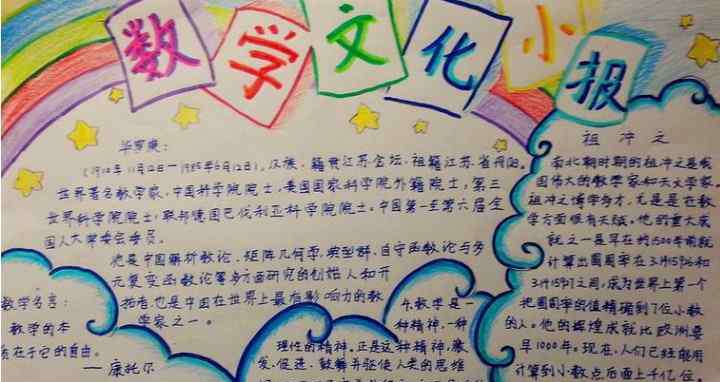 数学文化小报
华罗庚：
(1910年11月12日—1985年6月12日)，汉族，籍贯江苏金坛，祖籍江苏省丹阳。
世界著名数学家，中国科学院院士，美国国家科学院外籍院士，第三
世界科学院院士，联邦德国巴伐利亚科学院院士，中国第一至第六届全
国人大常委会委员。
他是中国解析数论、矩阵几何学、典型群、自守函数论与多
元复变函数论等多方面研究的创始人和开
拓者，也是中国在世界上最有影响力的数
学家之一。
数学名言：
数学的本
质在于它的自由。
——康托尔
4.数学是一
种精神，一种
理性的精神。正是这种精神，激
发、促进、鼓舞并驱使人类的思维
祖冲之
南北朝时期的祖冲之是我
国伟大的数学家和天文学家
祖冲之博学多才，尤是是在数
学方面很有天赋。他的重大成
就之一是早在约1500年前就
计算出圆周率在3.1415926和
3.1415927之间，成为世界上第一个
把圆周率的值精确到7位小数
的人。他的辉煌成就比欧洲要
早1000年。现在，人们已经能用
计算到小数点后面上千亿位。